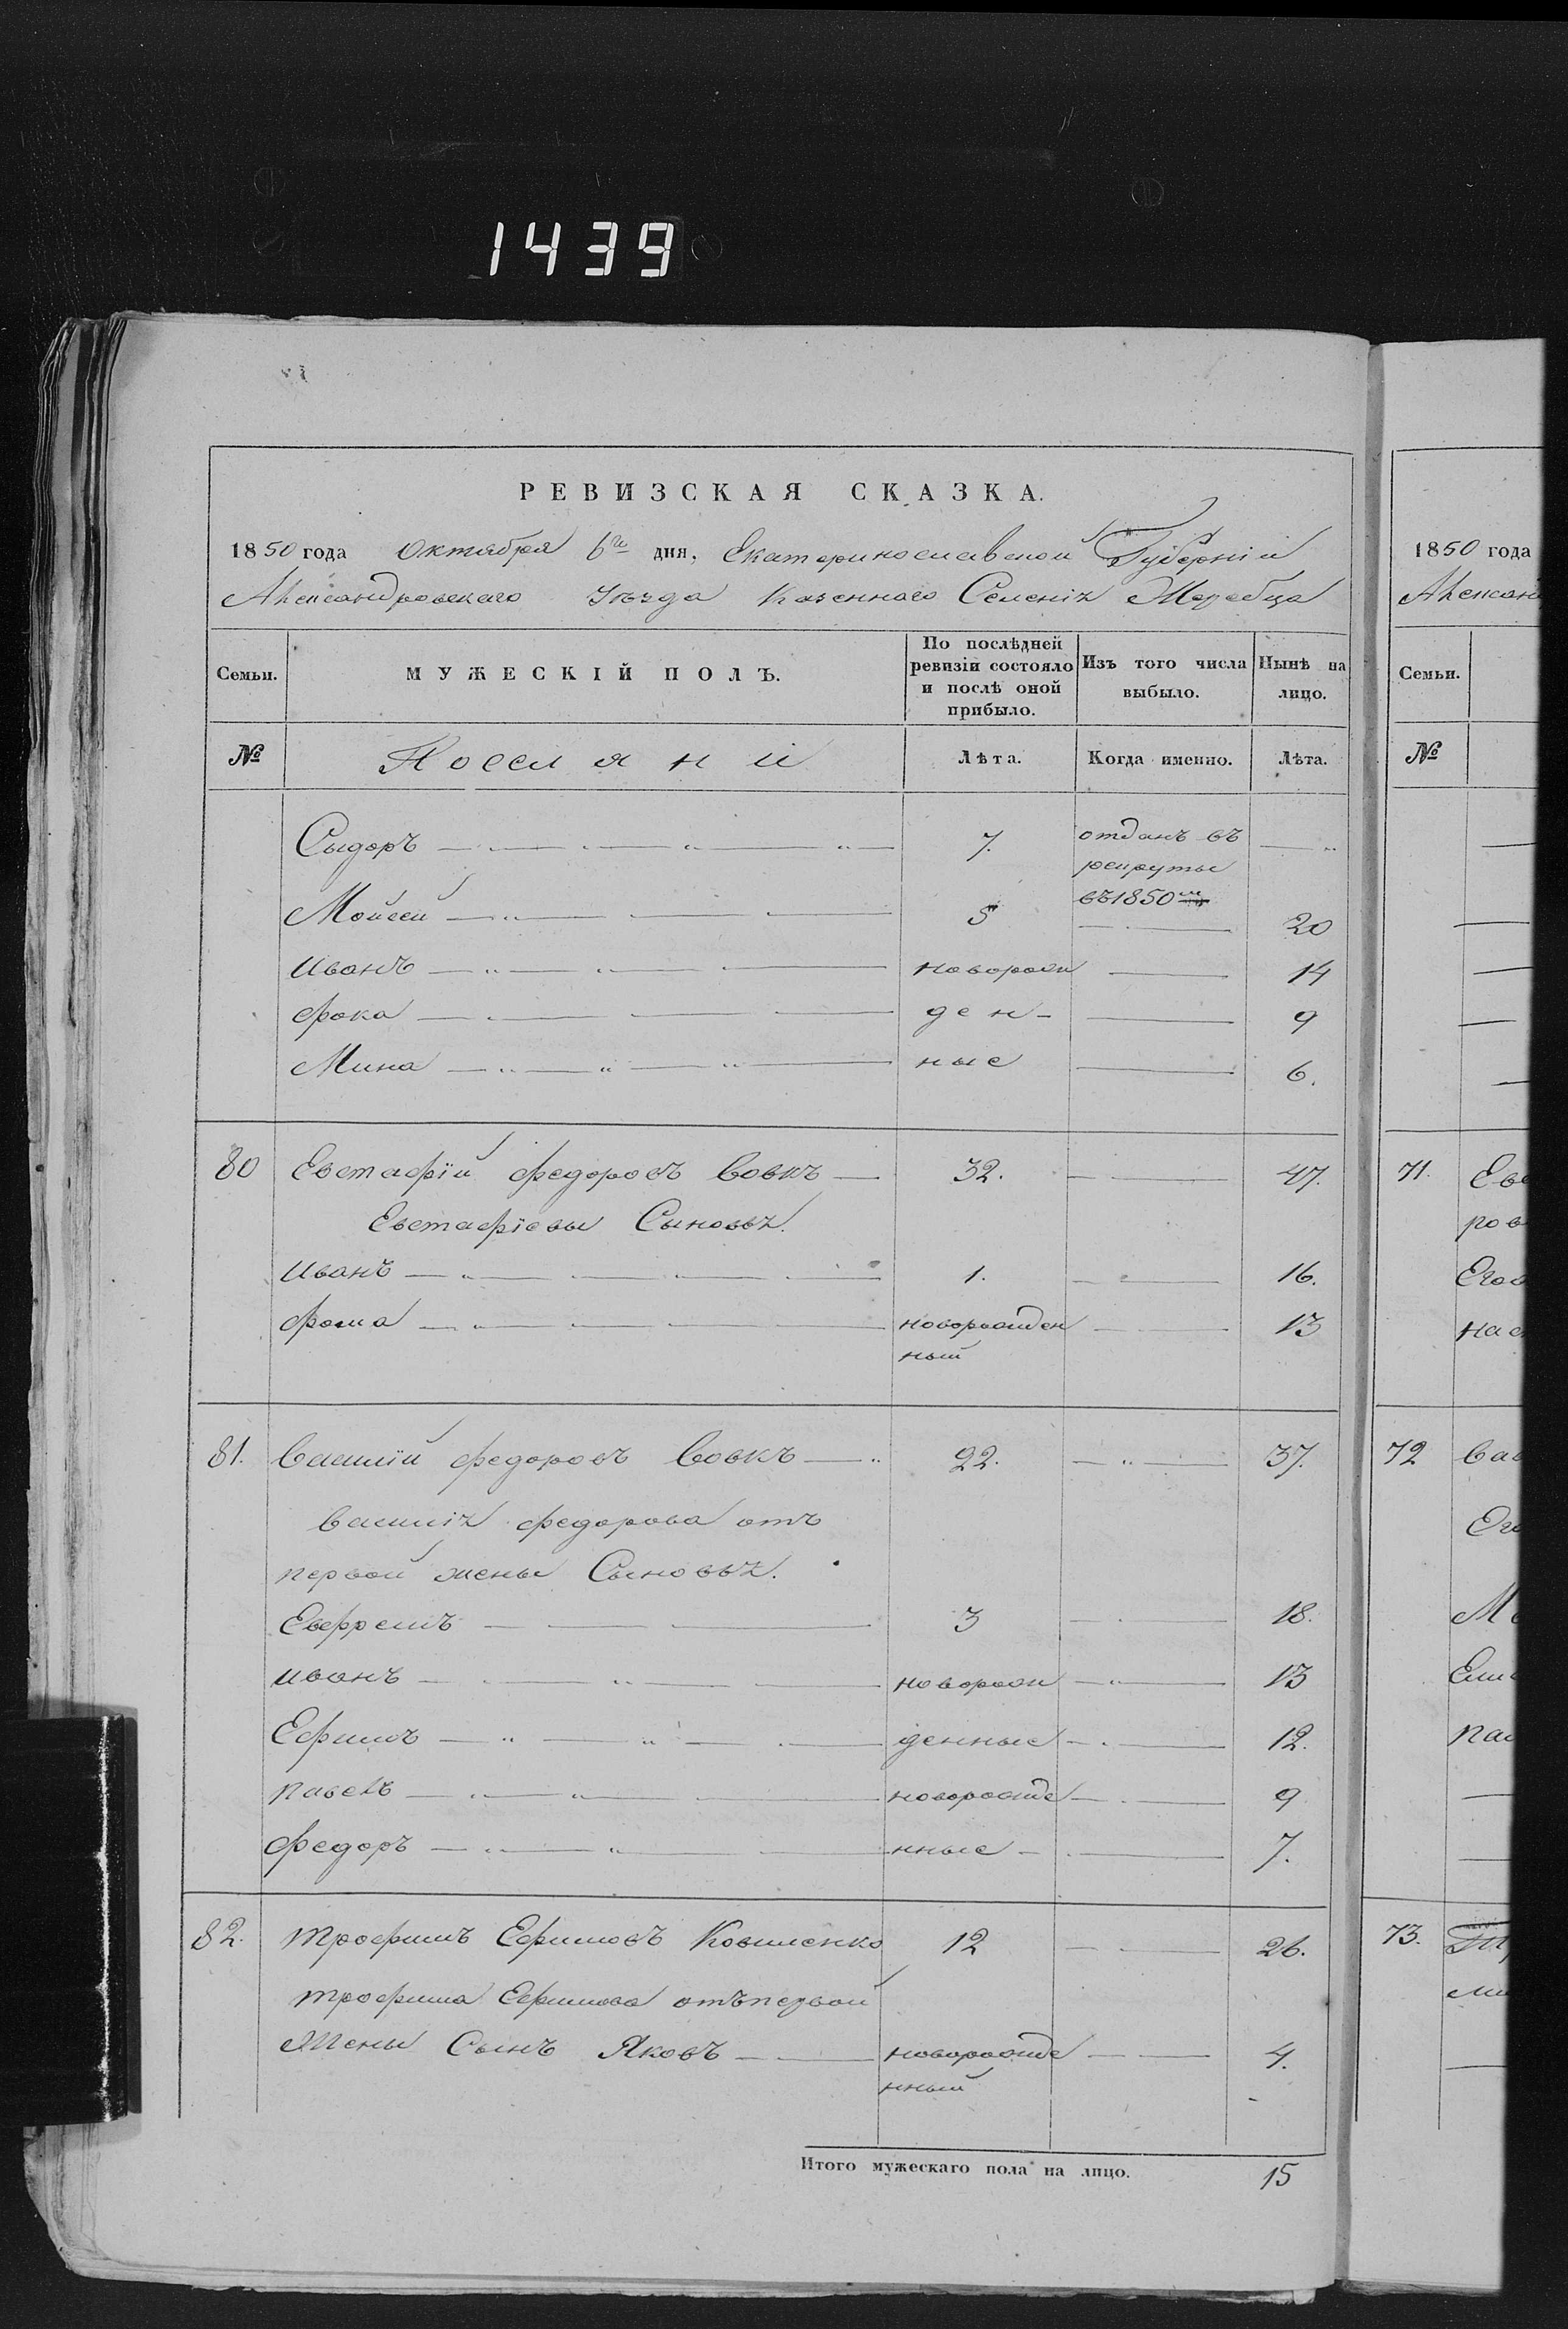 1439
РЕВИЗСКАЯ СКАЗКА.
1850 года Октября 6го дня, Екатеринославской Губерніи
Александровского Уезда Казенного Селенія Жеребца
Семьи. МУЖЕСКІЙ ПОЛЪ. По послѣдней ревизіи состояло и послѣ оной прибыло. Изъ того числа выбыло. Нынѣ на лицо.
№ Поселяни Лѣта. Когда именно. Лѣта.
Сыдоръ 7. отданъ въ рекруты въ 1850
Мойсей 5 20
Иванъ новорож 14
Фока ден- 9
Мина ные 6.
80 Евстафій Федоровъ Вовкъ 32. 47.
Евстафіевы Сыновья.
Иванъ 1. 16.
Фома новорожден 13
ный
81. Василій Федоровъ Вовкъ 22. 37.
Василія Федорова отъ
первой жены Сыновья.
Евфремъ 3 18.
Иванъ новорож 13
Ефимъ денные 12.
Павелъ новорожде 9
Федоръ нные 7.
82. Трофимъ Ефимовъ Ковшленко 12 26.
Трофима Ефимова отъ первой
Жены Сынъ Яковъ новорожде 4.
нный
Итого мужескаго пола на лицо. 15
1850 года
Алексан
Семьи.
№
71. Евс
ров
Его
нас
72 Вас
Его
М
Ели
Пас
73.